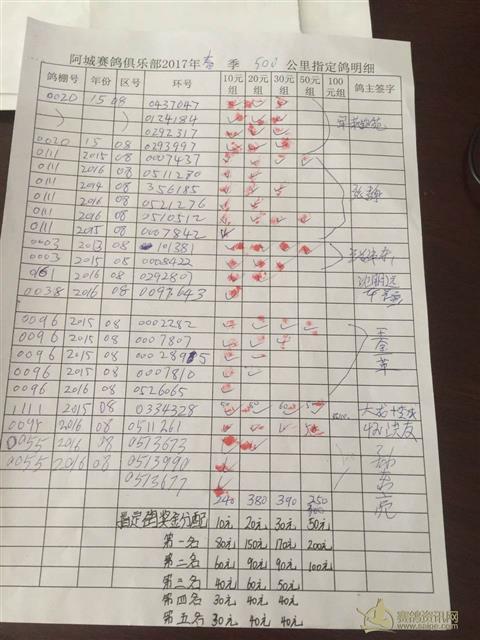 阿城赛鸽俱乐部2017年春季 500公里指定鸽明细
鸽棚号 年份 区号 环号 10元组 20元组 30元组 50元组 100元组 鸽主签字
0020 15 08 0437047
0124184
0292317
0020 15 08 0293997
0111 2015 08 0007437
0111 2016 08 0511280
0111 2014 08 356185
0111 2016 08 0521276
0111 2016 08 0510512
0111 2015 08 0007842
0003 2013 08 101381
0003 2015 08 0008422
0161 2016 08 0292807
0038 2016 08 0097643
0096 2015 08 0002282
0096 2016 08 0007807
0096 2015 08 0002895
0096 2015 08 0007810
0096 2016 08 0526065
1111 2015 08 0334328
2016 08 0511261
0055 2016 08 0513673
0055 2016 08 0513990
0513677
240 380 390 250
指定鸽奖金分配 10元 20元 30元 50元
第一名 80元 150元 170元 200元
第二名 60元 90元 90元 100元
第三名 40元 60元 50元
第四名 30元 40元 40元
第五名 30元 40元 40元
赛鸽资讯网
www.saige.com